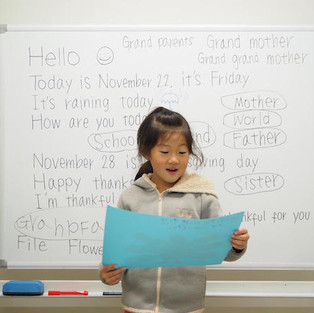 Hello Grand parents Grand mother
Grand grand mother
Today is November 22, it's Friday
It's raining today Mother
How are you today World
School nd Father
November 28 is giving day
Happy thank Sister
I'm thankful hankful for you
Grahpfa
File Flowe